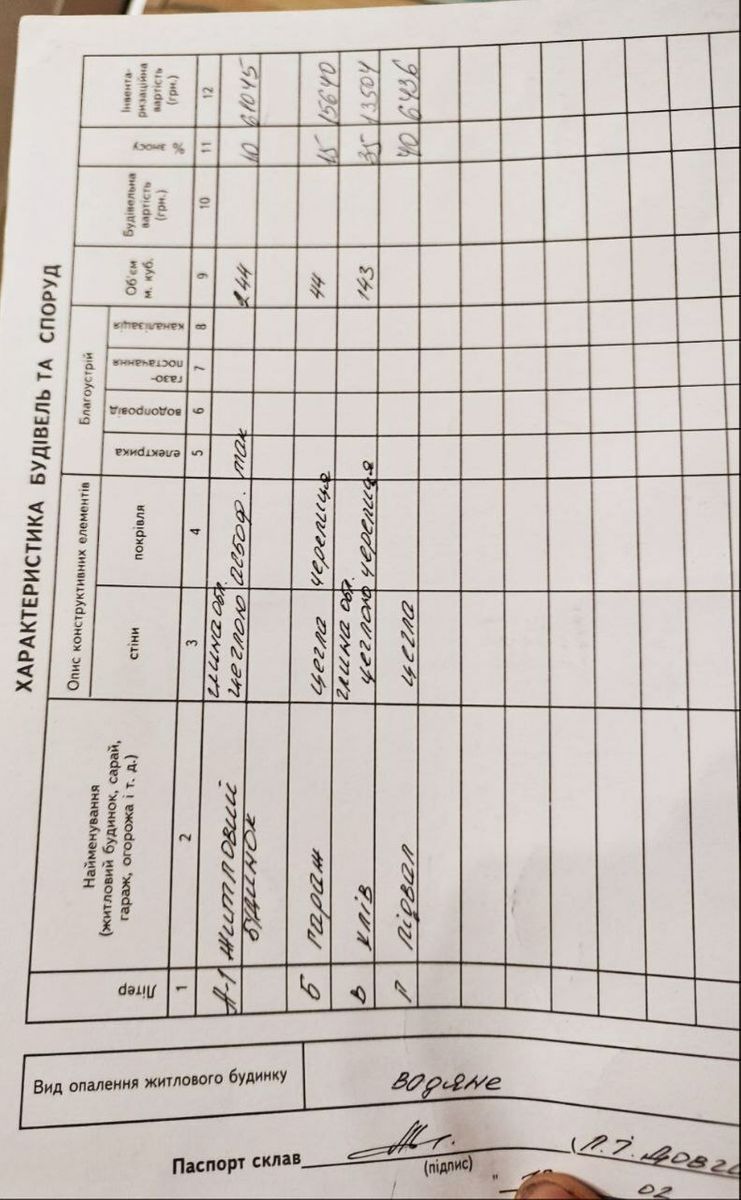 ХАРАКТЕРИСТИКА БУДІВЕЛЬ ТА СПОРУД
Літер
Найменування
(житловий будинок, сарай,
гараж, огорожа і т. д.)
Опис конструктивних елементів
стіни
покрівля
Благоустрій
електрика
водопровід
газо-
постачання
каналізація
Об'єм
м. куб.
Будівельна
вартість
(грн.)
% зносу
Інвента-
ризаційна
вартість
(грн.)
1 2 3 4 5 6 7 8 9 10 11 12
А-1 житловий глина обл.
будинок цеглою асбоф. так 244 10 61045
Б гараж цегла черепиця 44 15 15640
глина обл.
В хлів цеглою черепиця 143 35 13504
П підвал цегла 40 6436
Вид опалення житлового будинку
водяне
Паспорт склав
(підпис)
(П.І.
02